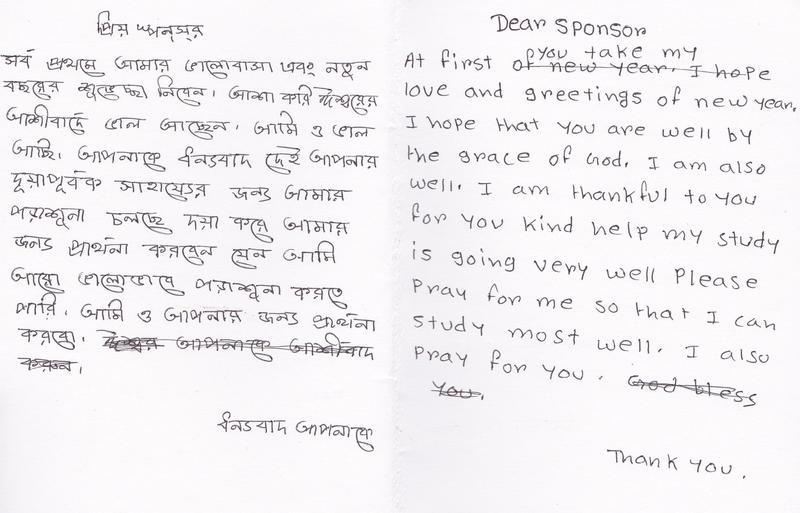 প্রিয় স্পনসর
সর্ব প্রথমে আমার ভালোবাসা এবং নতুন
বছরের শুভেচ্ছা নিবেন। আশা করি ঈশ্বরের
আশীবাদে ভাল আছেন। আমি ও ভাল
আছি। আপনাকে ধন্যবাদ দেই আপনার
দয়াপূর্বক সাহায্যের জন্য আমার
পরাশুনা চলছে দয়া করে আমার
জন্য প্রার্থনা করবেন যেন আমি
আরো ভালোভাবে পরাশুনা করতে
পারি। আমি ও আপনার জন্য প্রার্থনা
করবো। ঈশ্বর আপনাকে আশীর্বাদ
করুন।
ধন্যবাদ আপনাকে
Dear Sponsor
you take my
At first of new year. I hope
love and greetings of new year.
I hope that you are well by
the grace of God. I am also
well. I am thankful to you
for you kind help my study
is going very well Please
Pray for me so that I can
study most well. I also
Pray for you. God bless
you.
Thank you.